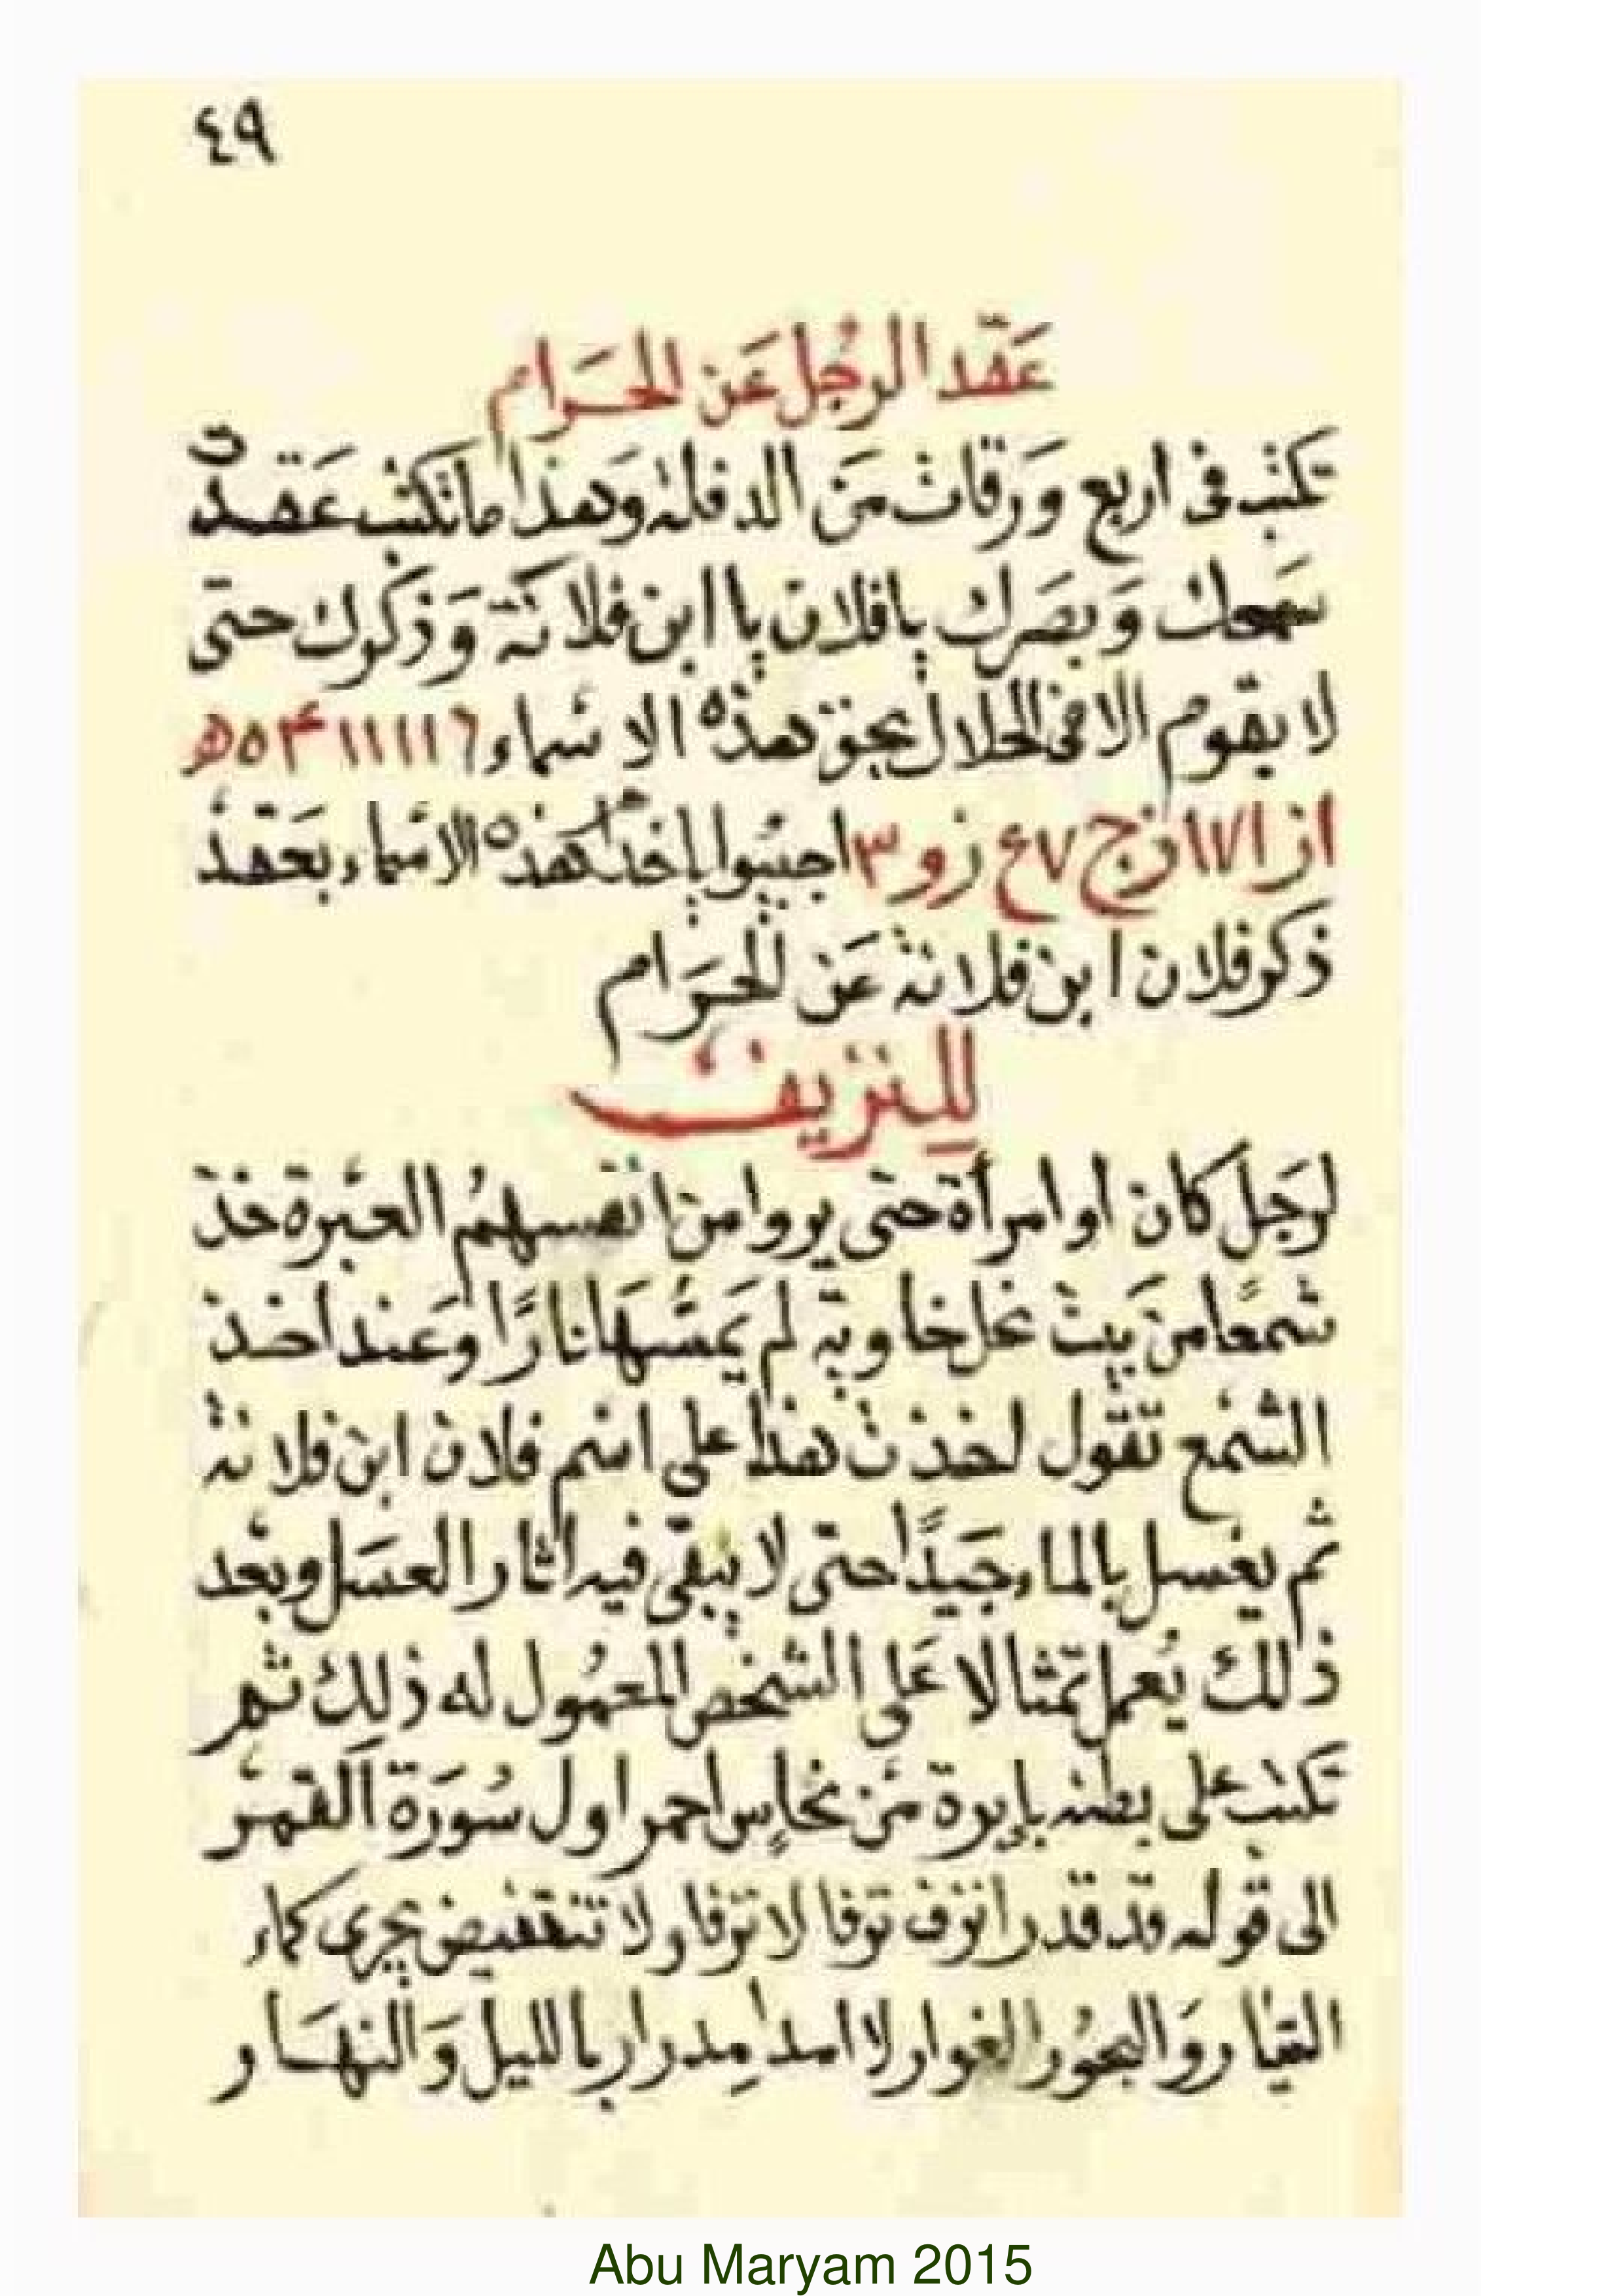 ٤٩
عَقد الرجُل عَن الحَرام
تكتب فى اربع وَرقات مَن الدفله وَهذا ما تكتب عَقدت
سَمعك وَبصَرك يافلان يا ابن فلانة وَذكرك حتى
لا يقوم الا فى الحلال بحق هذه الاسماء ٦١١١١١۴٥ھ
از١٧١زج٧ع زو٣ اجيبوا ياخدام هذه الاسماء بعَقد
ذكر فلان ابن فلانة عَن الحَرام
لِلنزيف
لرَجل كان او امرأة حتى يروا من انفسهمُ العبْرة خذ
شمعًا من بيَت نحل خاويه لم يَمسّهَا نارًا وعَند اخذ
الشمْع تقول اخذت هذا على اسْم فلان ابن فلانة
ثم يغسل بالماء جَيدًا حتى لا يبْقى فيه اثار العسَل وبعْد
ذلك يُعمل تمثالا عَلى الشخص المعمُول له ذلِك ثم
تكتب على بطنه بإبرة مَن نحاسٍ احمر اول سُورَة القمر
الى قوله قد قدر انزف نزفا لا نزفا ولا تنقضيض يجرى كماء
التيار وَالبحُور الغوار لا امدا مِدرار بالليل وَالنهَار
Abu Maryam 2015